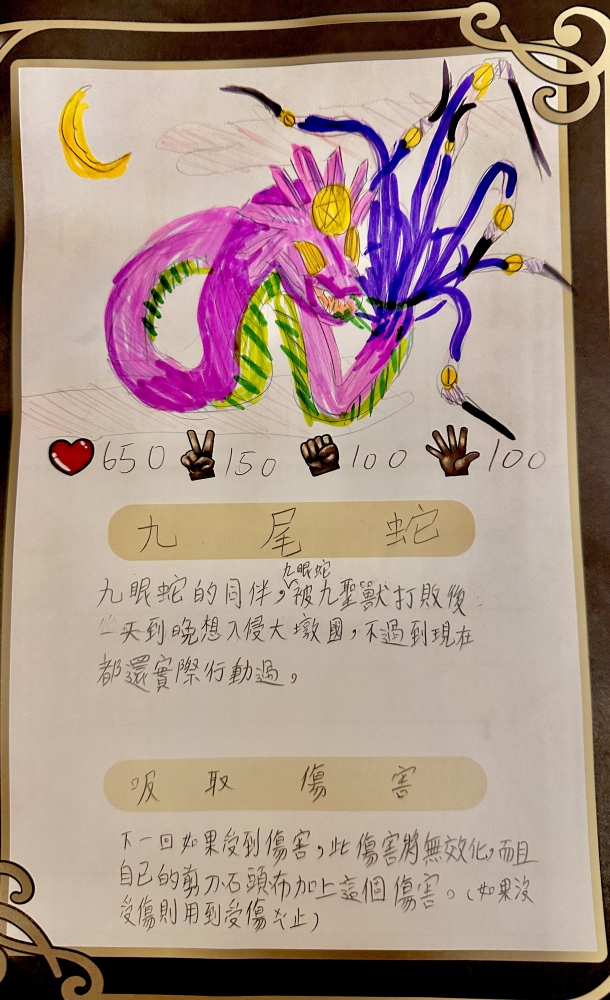 650 150 100 100
九尾蛇
九眼蛇
九眼蛇的同伴，被九聖獸打敗後
一天到晚想入侵大墩國，不過到現在
都還實際行動過。
吸取傷害
下一回如果受到傷害，此傷害將無效化，而且
自己的剪刀石頭布加上這個傷害。（如果沒
受傷則用到受傷為止）